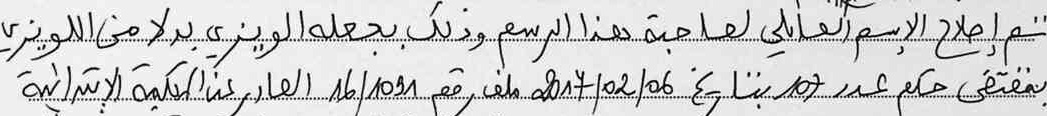 تم إصلاح الإسم العائلي لصاحبة هذا الرسم وذلك بجعله الوينزي بدلا من اللوينزي
بمقتضى حكم عدد 107 بتاريخ 2017/02/06 ملف رقم 16/1091 الصادر عن المحكمة الابتدائية